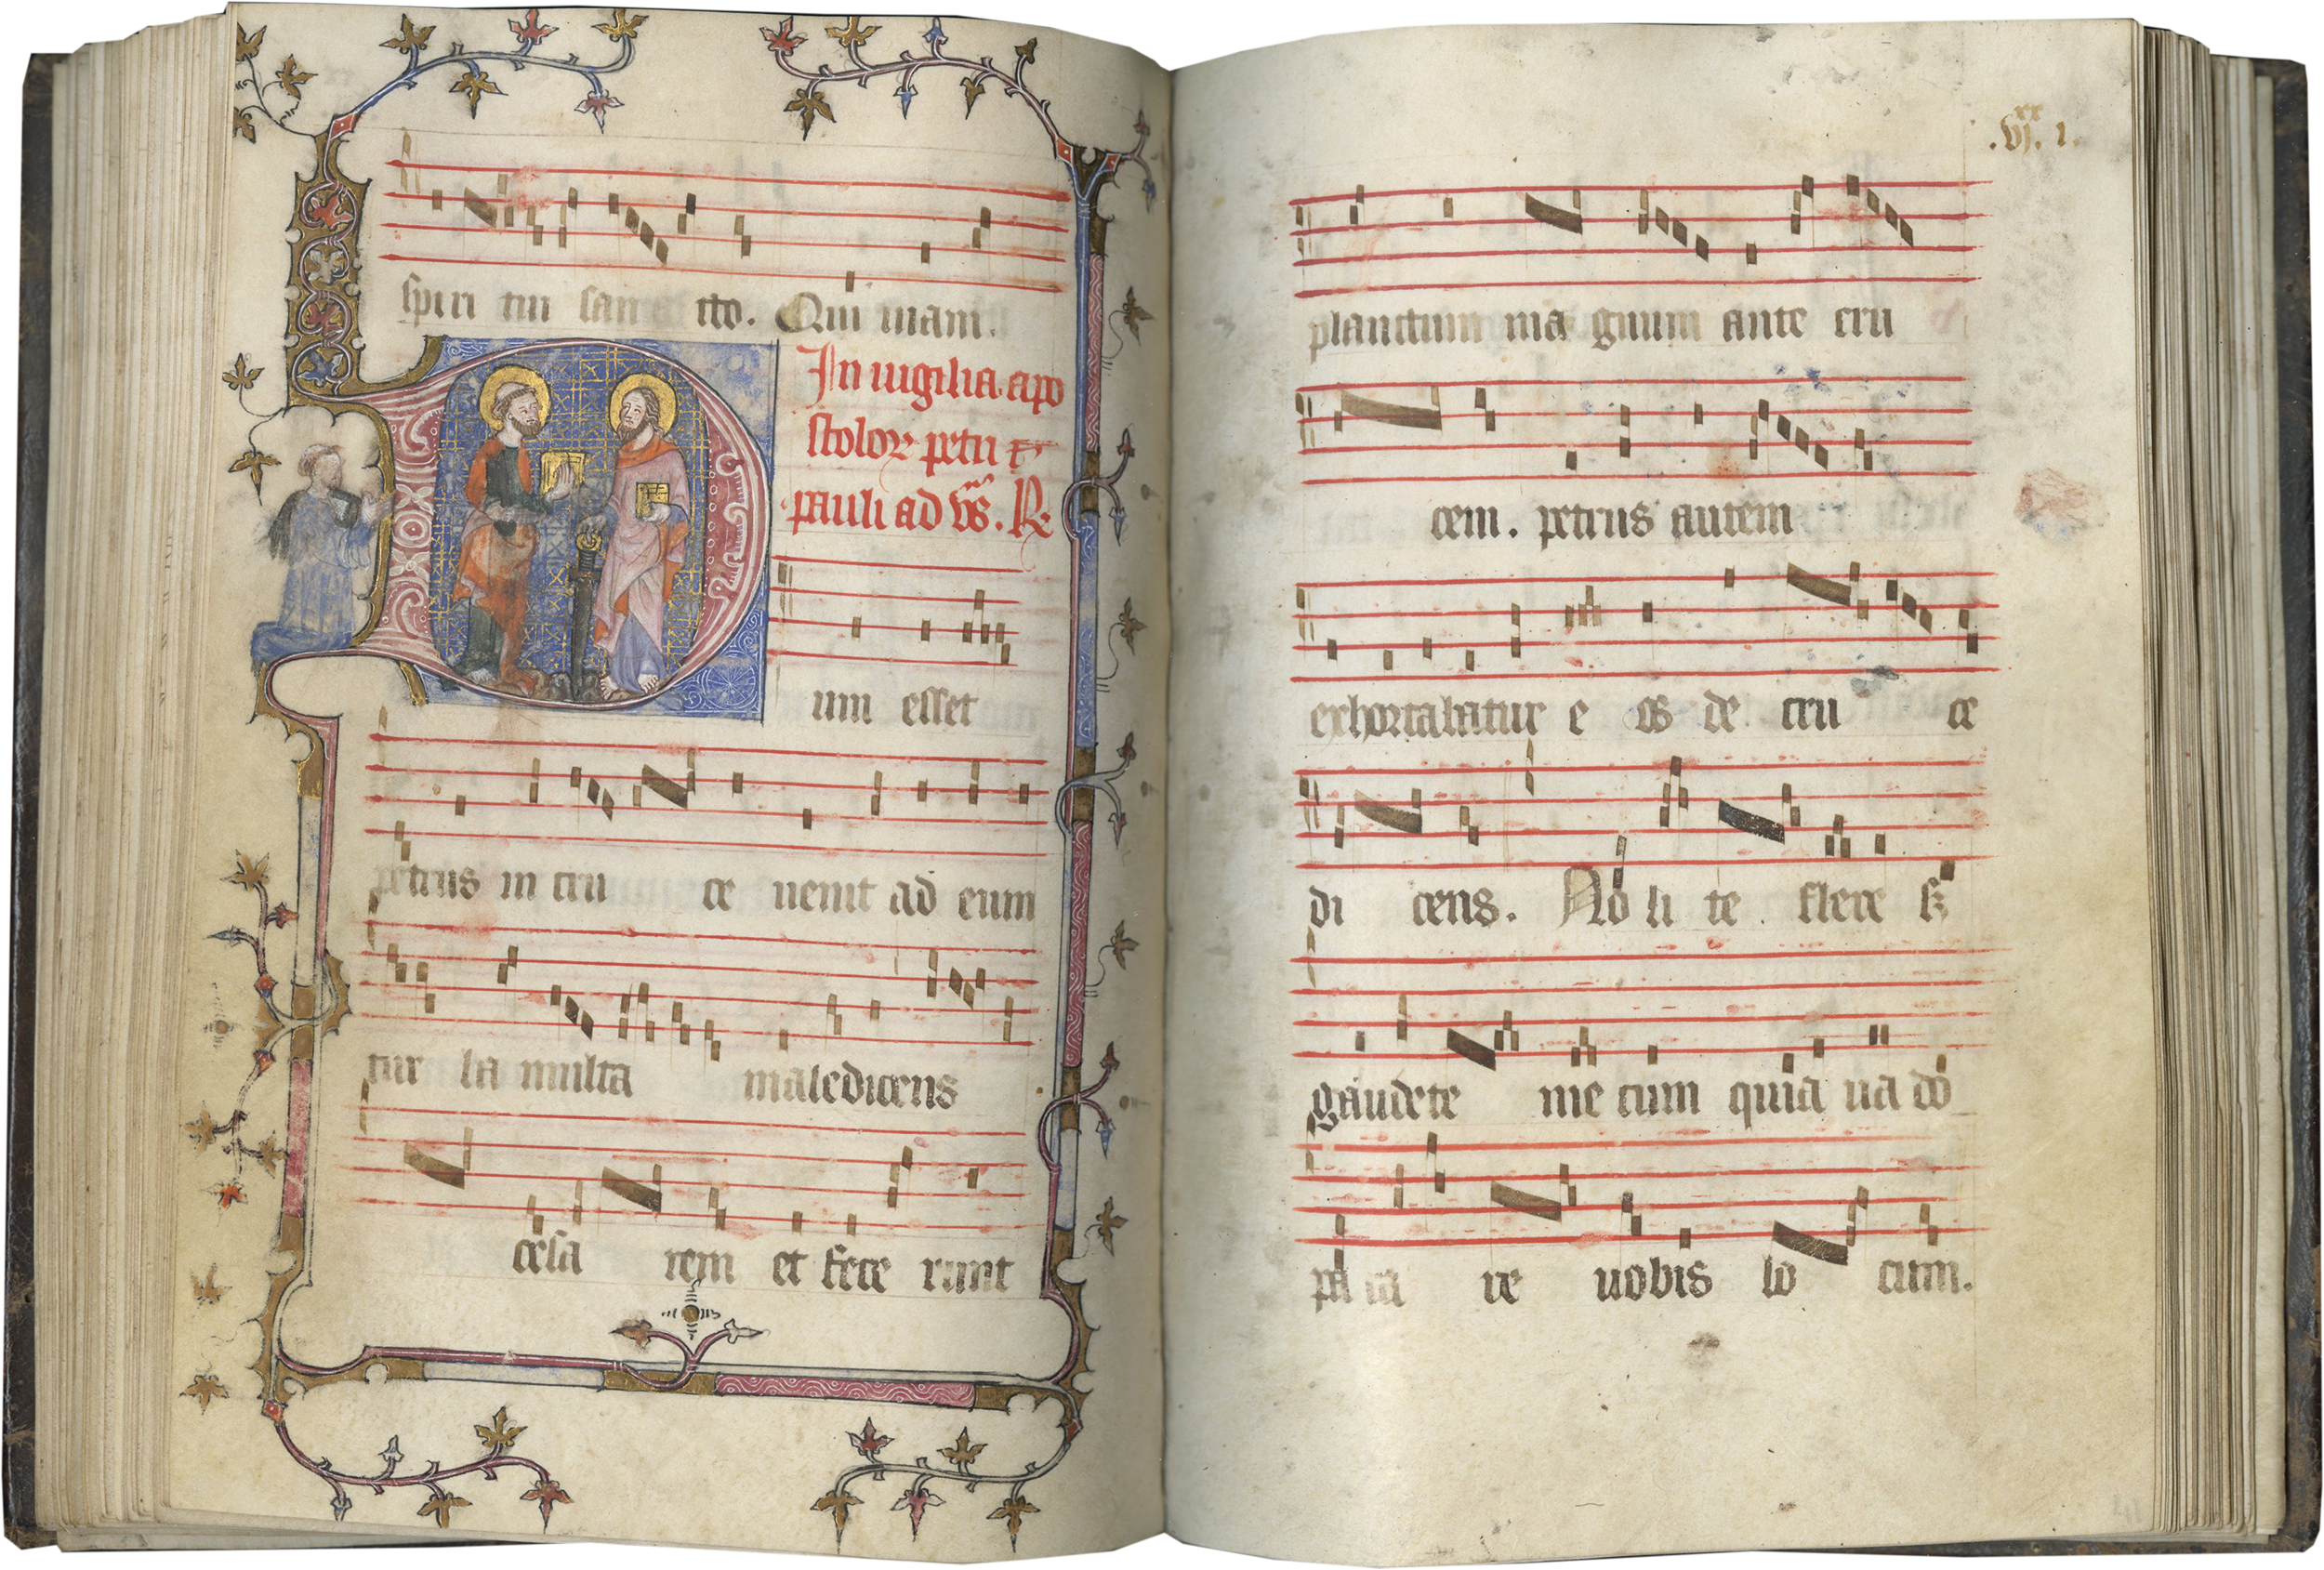 spiri tui san cto. Qui mani.
In uigilia apo
stolorꝝ petri ⁊
pauli ad vs̅. ℟.
um esset
petrus in cru ce uenit ad eum
tur ba multa maledicens
cesa rem et fece runt
.vj.^xx 1.
planctum ma gnum ante cru
cem. petrus autem
exhortabatur e os de cru ce
di cens. No li te flere sꝫ
gaudete me cum quia ua do
pa ra re uobis lo cum.